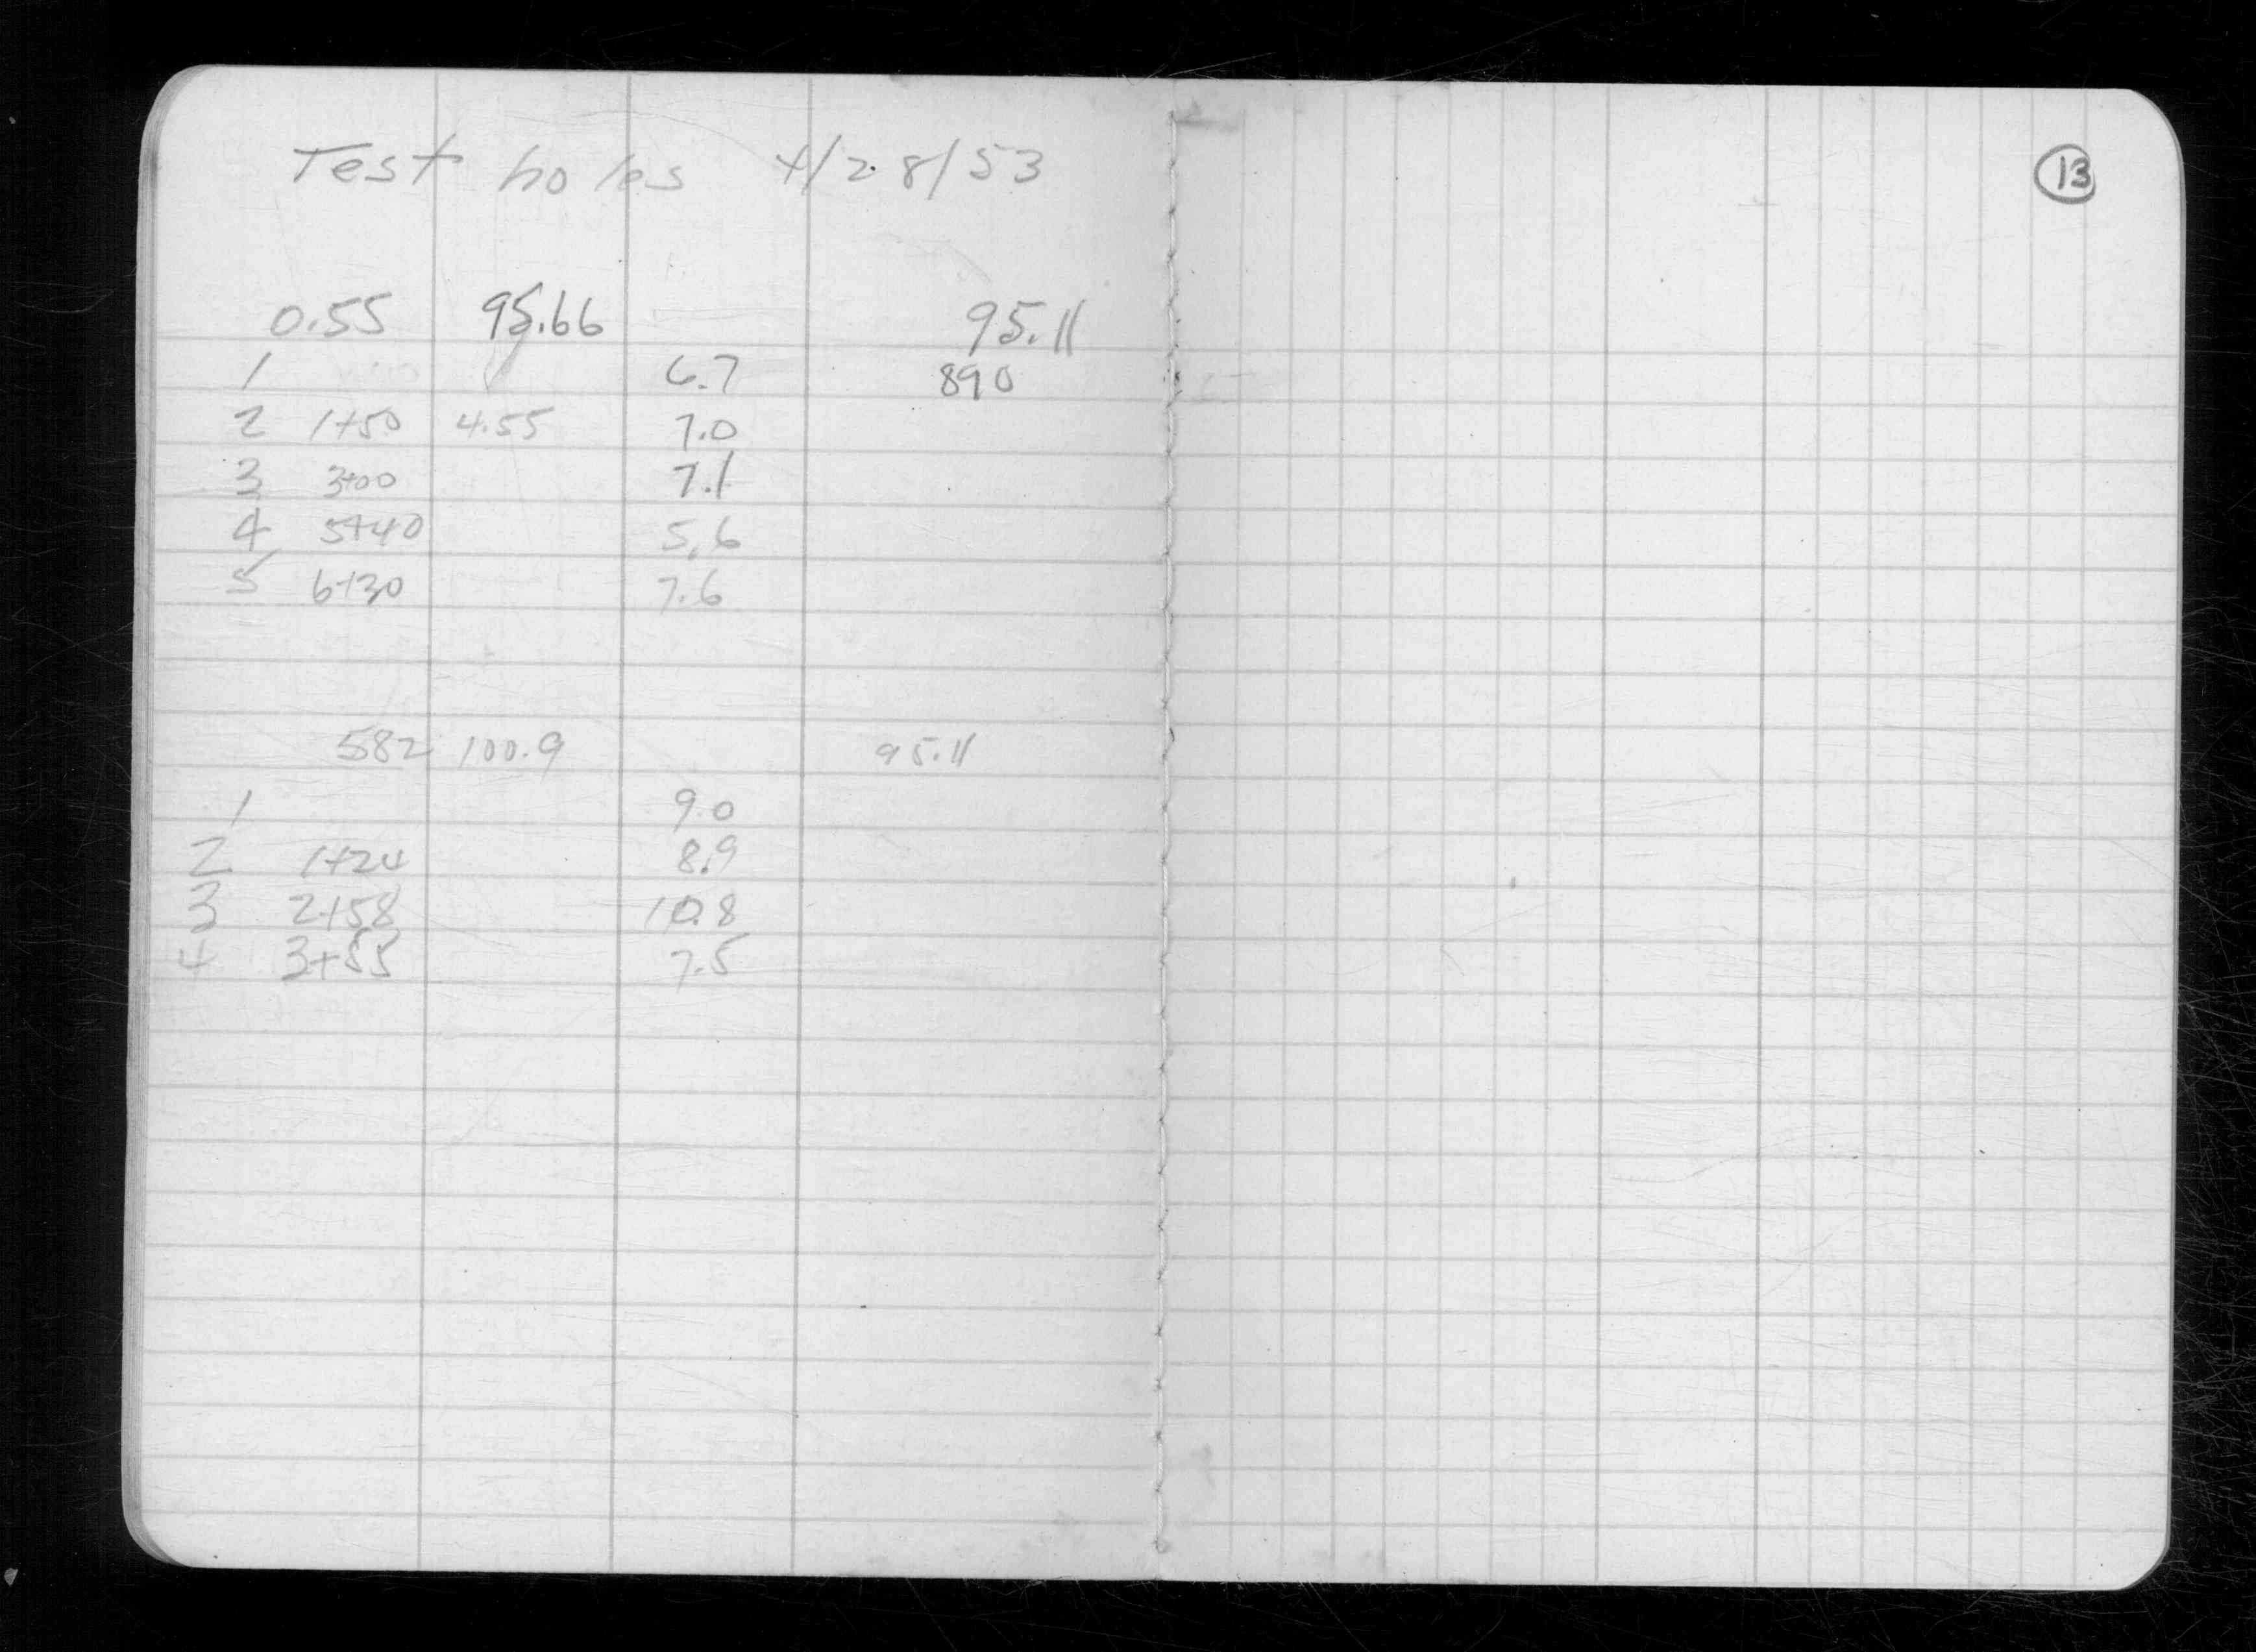 Test holes 4/28/53
13
0.55 95.66 95.11
1 6.7 890
2 1+50 4.55 7.0
3 3+00 7.1
4 5+40 5.6
5 6+30 7.6
582 100.9 95.11
1 9.0
2 1+24 8.9
3 2+58 10.8
4 3+55 7.5